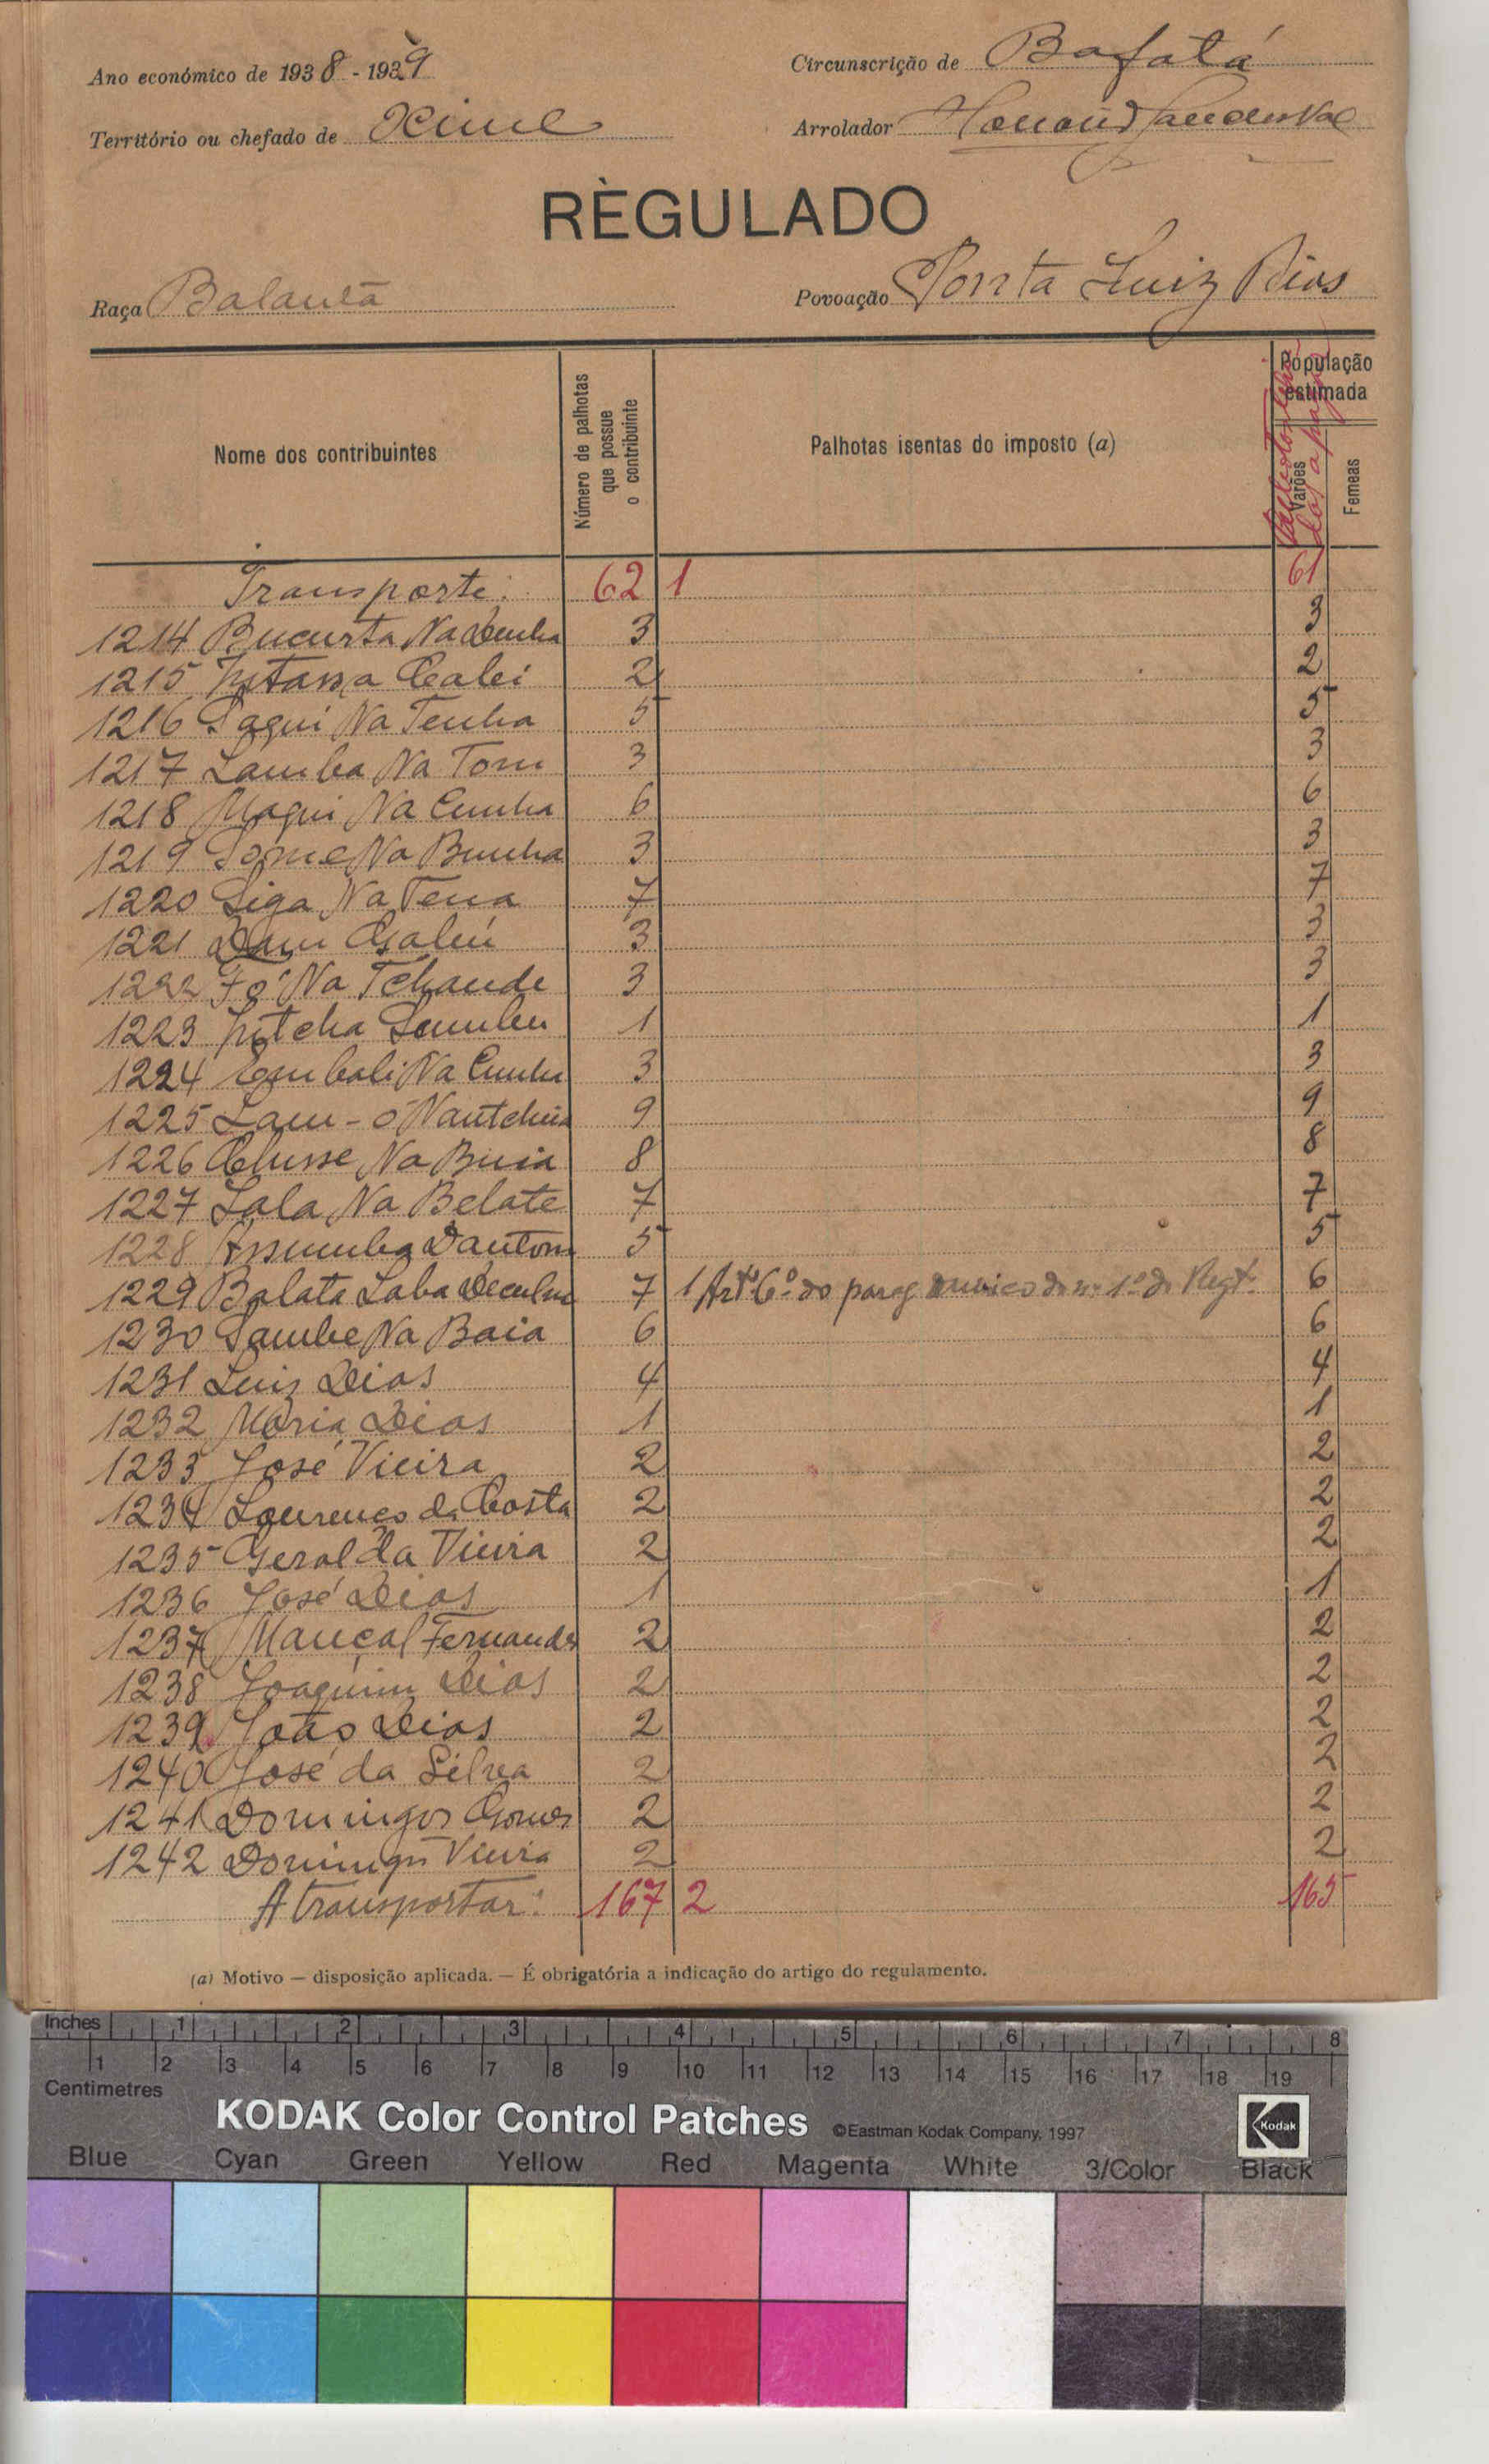 Ano económico de 1938 - 1939
Circunscrição de Bafatá
Território ou chefado de Xime
Arrolador
RÈGULADO
Raça Balanta
Povoação Ponta Luiz Dias
Nome dos contribuintes
Número de palhotas que possue o contribuinte
Palhotas isentas do imposto (a)
População estimada
Varões
Femeas
Transporte: 62 1 61
1214 Na 3 3
1215 2 2
1216 Na Tenha 5 5
1217 Lamba Na Tom 3 3
1218 Maqui Na Cunha 6 6
1219 Na Bunha 3 3
1220 Siga Na Tena 7 7
1221 3 3
1222 Fó Na Tchande 3 3
1223 1 1
1224 Na Cunha 3 3
1225 Lam-ó Nantchia 9 9
1226 Na 8 8
1227 Lala Na Belate 7 7
1228 5 5
1229 Balata Laba 7 1 Artº 6º do parag unico do nº 1º do Regt. 6
1230 Sambe Na Baia 6 6
1231 Luiz Dias 4 4
1232 Maria Dias 1 1
1233 José Vieira 2 2
1234 Lourenço da Costa 2 2
1235 Geralda Vieira 2 2
1236 José Dias 1 1
1237 Marçal Fernandes 2 2
1238 Joaquim Dias 2 2
1239 João Dias 2 2
1240 José da Silva 2 2
1241 Domingos Gomes 2 2
1242 Domingos Vieira 2 2
A transportar: 167 2 165
(a) Motivo — disposição aplicada. — É obrigatória a indicação do artigo do regulamento.
Inches 1 2 3 4 5 6 7 8
1 2 3 4 5 6 7 8 9 10 11 12 13 14 15 16 17 18 19
Centimetres
KODAK Color Control Patches ©Eastman Kodak Company, 1997 Kodak
Blue Cyan Green Yellow Red Magenta White 3/Color Black